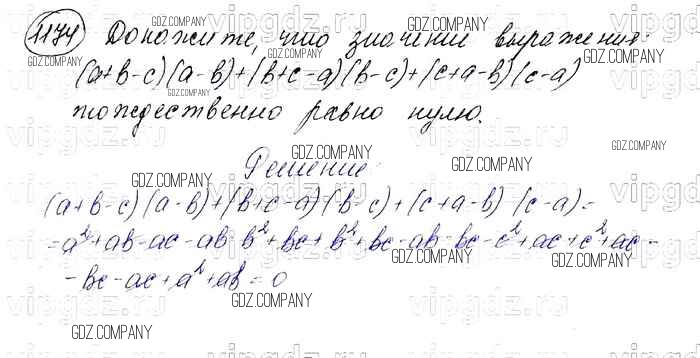 1174 Докажите, что значение выражения:
(a+b-c)(a-b)+(b+c-a)(b-c)+(c+a-b)(c-a)
тождественно равно нулю.
Решение:
(a+b-c)(a-b)+(b+c-a)(b-c)+(c+a-b)(c-a)=
=a²+ab-ac-ab-b²+bc+b²+bc-ab-bc-c²+ac+c²+ac-
-bc-ac+a²+ab=0
GDZ.COMPANY
vipgdz.ru